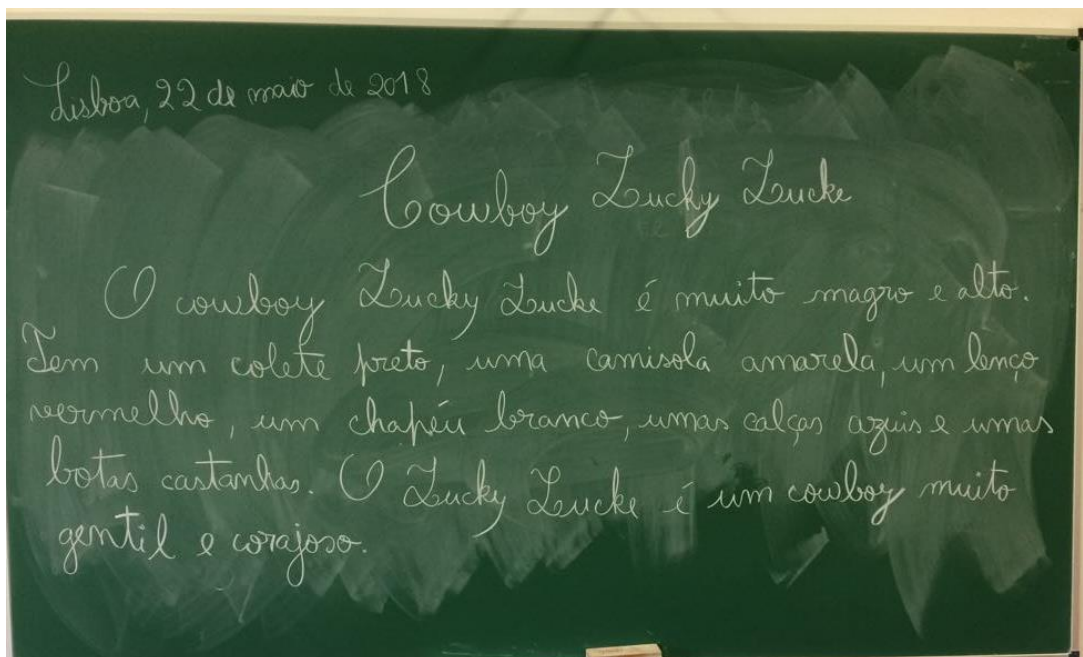 Lisboa, 22 de maio de 2018
Cowboy Lucky Lucke
O cowboy Lucky Lucke é muito magro e alto.
Tem um colete preto, uma camisola amarela, um lenço
vermelho, um chapéu branco, umas calças azuis e umas
botas castanhas. O Lucky Lucke é um cowboy muito
gentil e corajoso.